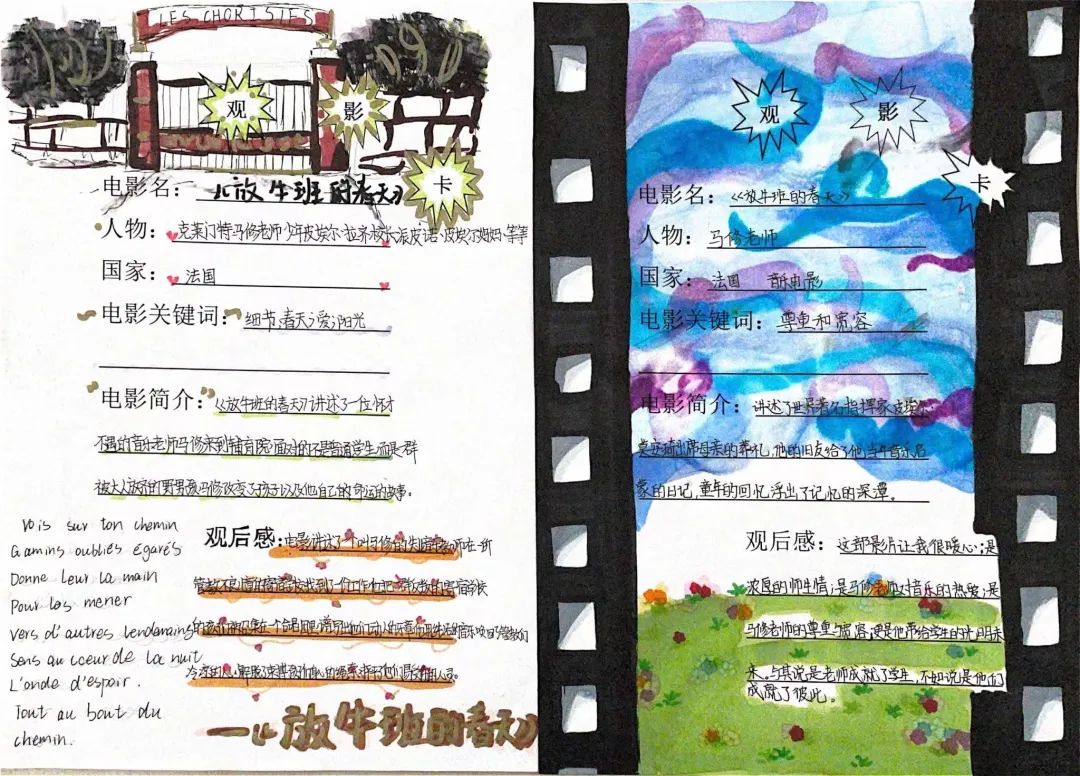 LES CHORISTES
观
影
卡
电影名：《放牛班的春天》
人物：克莱门特马修老师 少年皮埃尔·拉齐校长 派皮诺·皮埃尔妈妈·等等
国家：法国
电影关键词：细节、春天、爱、阳光
电影简介：《放牛班的春天》讲述了一位怀才
不遇的音乐老师马修来到辅育院，面对的不是普通学生，而是一群
被大人放弃的野男孩，马修改变了孩子以及他自己的命运的故事。
观后感：电影讲述了一个叫马修的失
Vois sur ton chemin
Gamins oubliés égarés
Donne leur la main
Pour les mener
Vers d'autres lendemains
Sens au coeur de la nuit
L'onde d'espoir.
Tout au bout du
chemin.
一《放牛班的春天》
观
影
卡
电影名：《放牛班的春天》
人物：马修老师
国家：法国 音乐电影
电影关键词：尊重和宽容
电影简介：讲述了世界著名指挥家皮埃尔
莫安琦出席母亲的葬礼，他的旧友给了他，当年音乐启
蒙的日记，童年的回忆浮出了记忆的深潭。
观后感：这部影片让我很暖心；是
浓厚的师生情；是马修老师对音乐的热爱；是
马修老师的尊重与宽容，更是他带给学生的光明未
来。与其说是老师成就了学生，不如说是他们
成就了彼此。